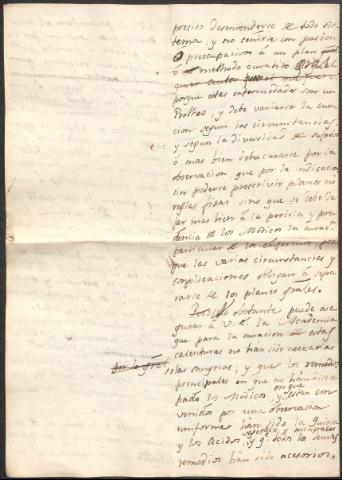 precios desentenderse de todo sis-
tema, y no ceñirse con pasion
o preocupacion á un plan
ó methodo curativo
porque estas enfermedades son un
Protheo, y debe variarse la cura-
cion segun las circunstancias
y segun la diversidad de sugetos
ó mas bien debe curarse por la
observacion, que por la indicacion
sin poderse prescrivir planes ni
reglas fixas, sino que se debe de-
jar mas bien á la pericia y pru-
dencia de los Medicos la curacn.
particular de los enfermos, por-
que las varias circunstancias y
complicaciones obligan á sepa-
rarse de los planes grales.
No obstante puede ase-
gurar á V.E. la Academia
que para la curacion de estas
calenturas no han sido necesarias
por lo gral. las sangrias, y que los remedios
principales en que no han discre-
pado los Medicos, y en que estan con-
venidos por una observacion
uniforme han sido la quina
y los acidos vegetales, y minerales
y q. todos los demas
remedios han sido accesorios.